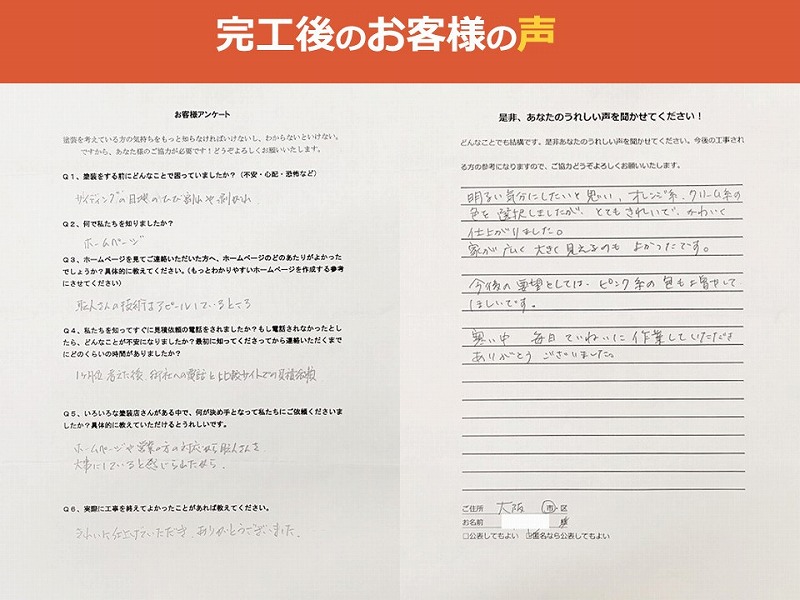 完工後のお客様の声
お客様アンケート
塗装を考えている方の気持ちをもっと知らなければいけないし、わからないといけない。
ですから、あなた様のご協力が必要です！どうぞよろしくお願いいたします。
Q１、塗装をする前にどんなことで困っていましたか？（不安・心配・恐怖など）
サイディングの目地のひび割れや剥がれ
Q２、何で私たちを知りましたか？
ホームページ
Q３、ホームページを見てご連絡いただいた方へ、ホームページのどのあたりがよかった
でしょうか？具体的に教えてください。（もっとわかりやすいホームページを作成する参考
にさせてください）
職人さんの技術をアピールしているところ
Q４、私たちを知ってすぐに見積依頼の電話をされましたか？もし電話されなかったとし
たら、どんなことが不安になりましたか？最初に知ってくださってから連絡いただくまで
にどのくらいの時間がありましたか？
1ヶ月位考えた後、御社への電話と比較サイトでの見積依頼
Q５、いろいろな塗装店さんがある中で、何が決め手となって私たちにご依頼くださいま
したか？具体的に教えていただけるとうれしいです。
ホームページや営業の方の対応から職人さんを
大事にしていると感じられたから。
Q６、実際に工事を終えてよかったことがあれば教えてください。
きれいに仕上げていただき、ありがとうございました。
是非、あなたのうれしい声を聞かせてください！
どんなことでも結構です。是非あなたのうれしい声を聞かせてください。今後の工事され
る方の参考になりますので、ご協力どうぞよろしくお願いいたします。
明るい気分にしたいと思い、オレンジ系、クリーム系の
色を選択しましたが、とてもきれいで、かわいく
仕上がりました。
家が広く大きく見えるのもよかったです。
今後の要望としては、ピンク系の色も増やして
ほしいです。
寒い中 毎日ていねいに作業していただき
ありがとうございました。
ご住所 大阪 市・区
お名前 様
□公表してもよい ☑匿名なら公表してもよい